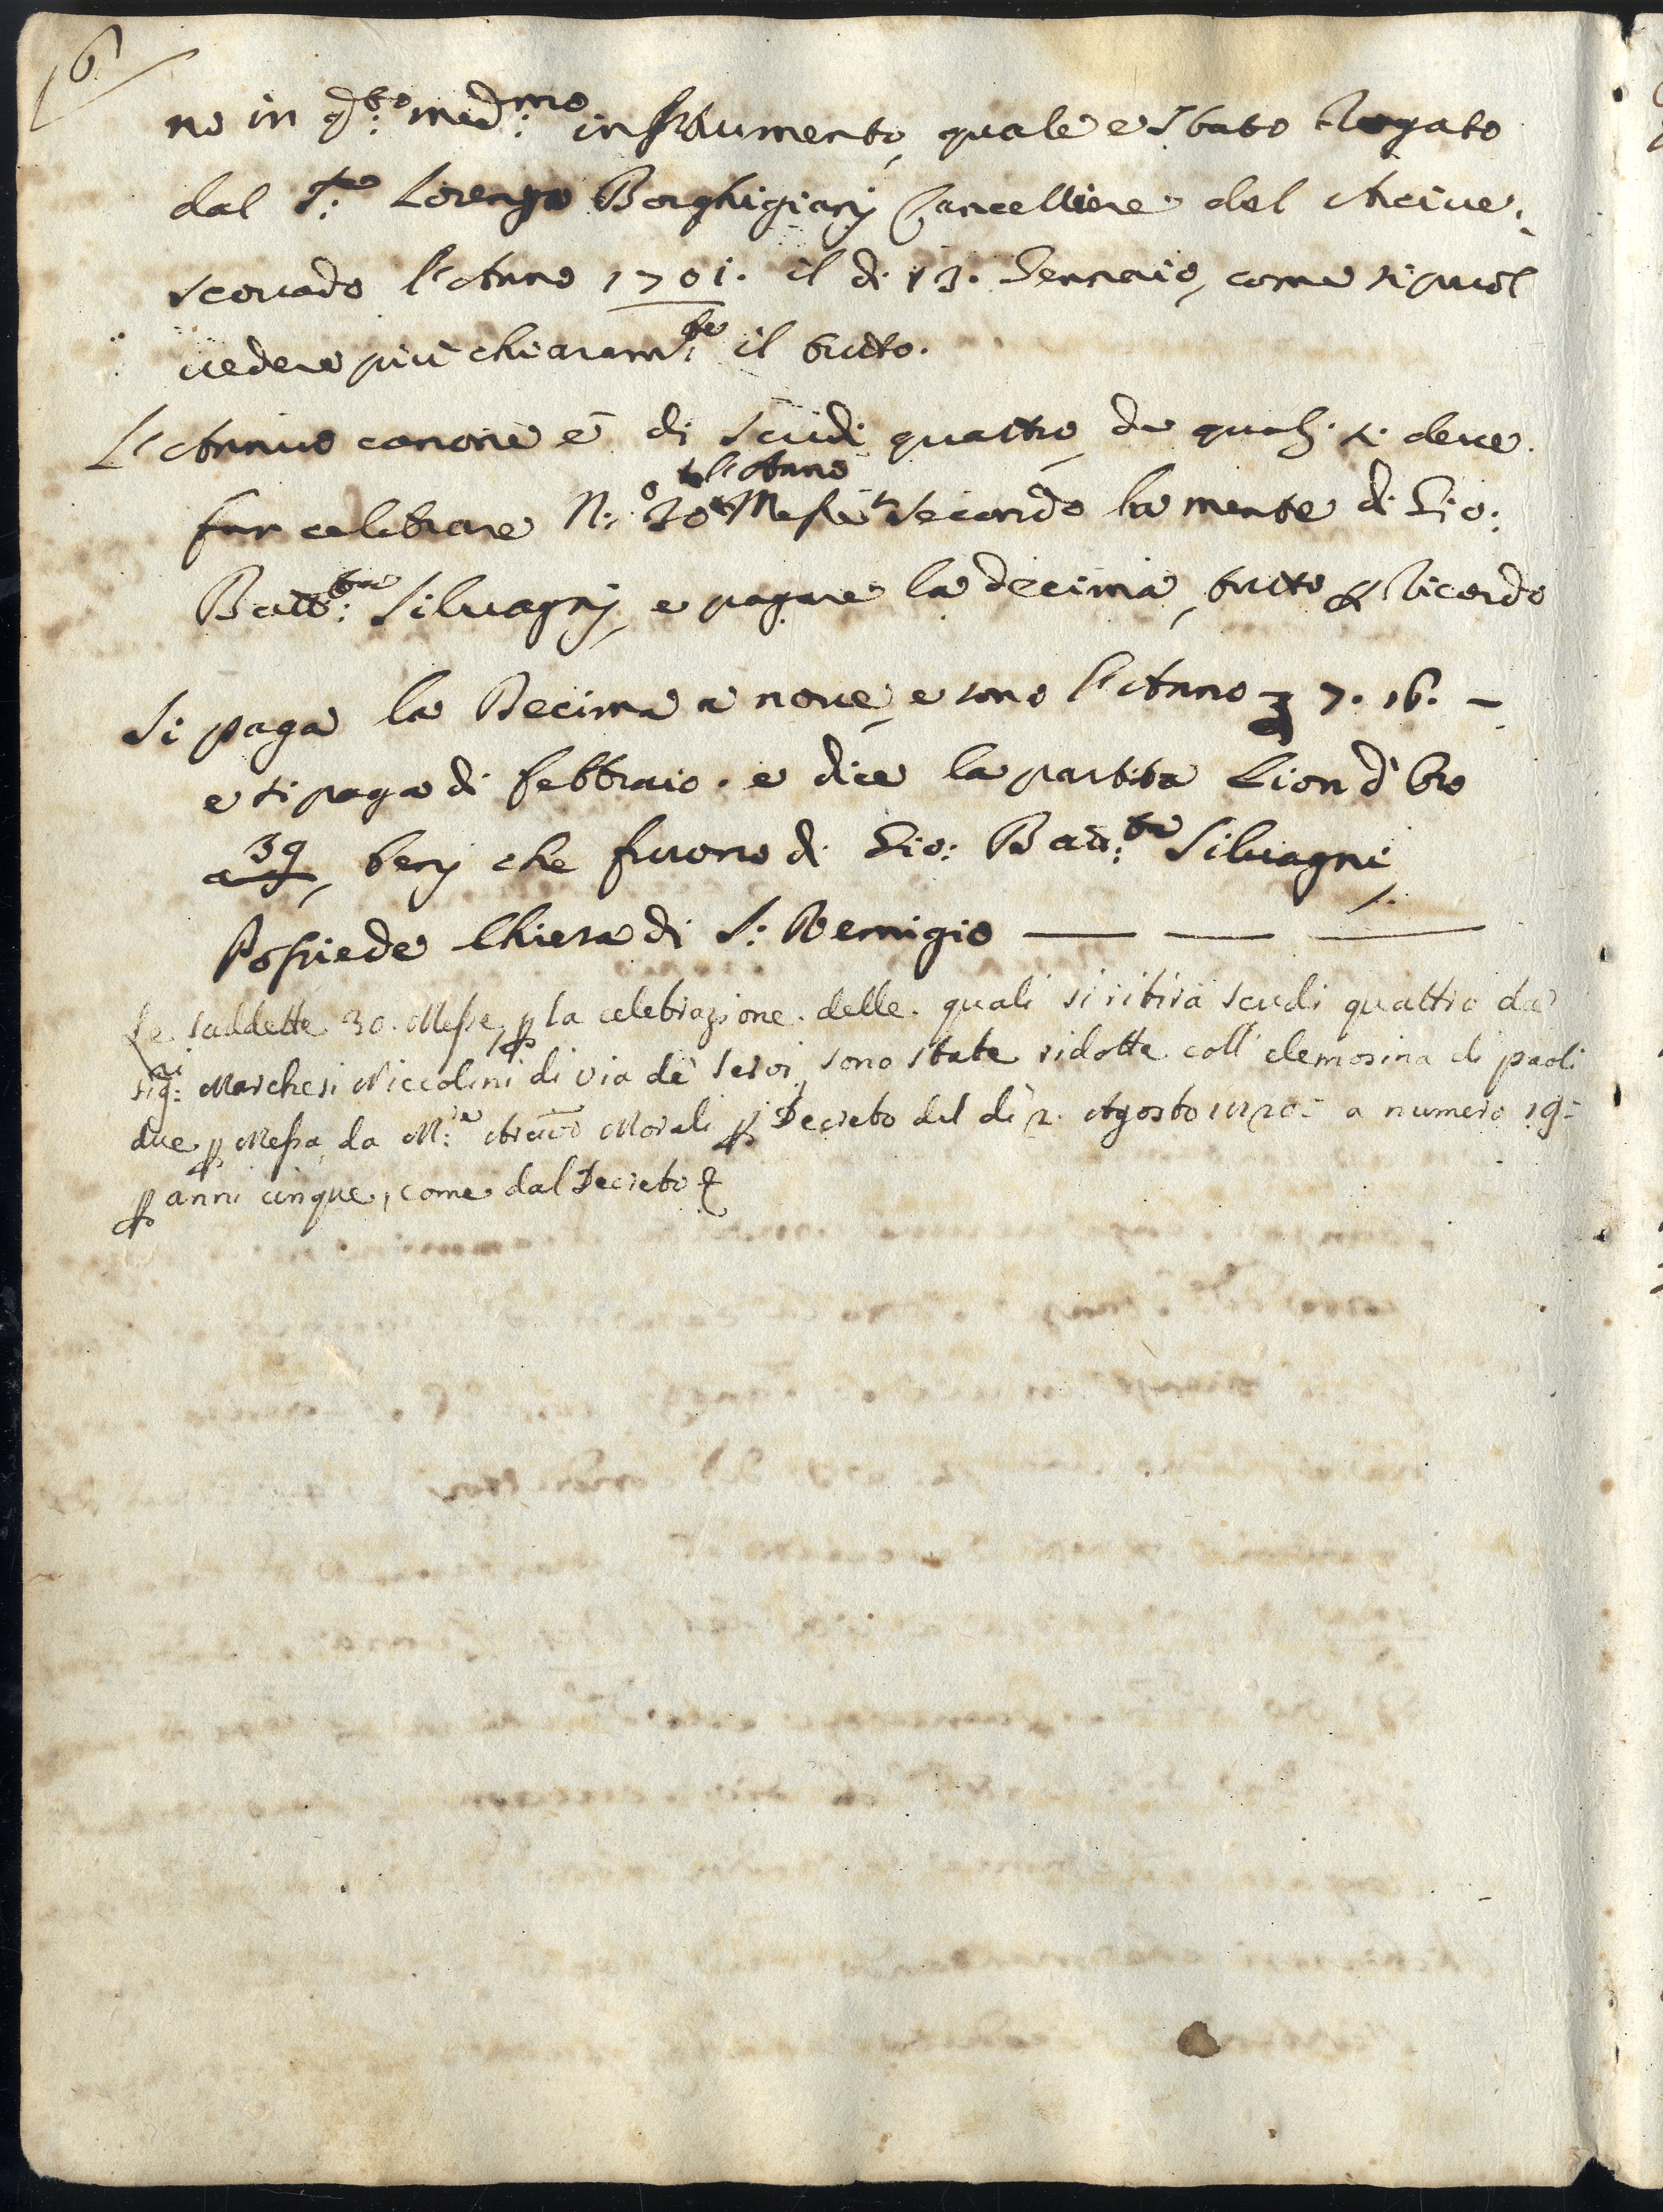 6
no in q:to med:mo instrumento, quale è stato Rogato
dal S:re Lorenzo Borghigianj Cancelliere del Arcive:
scovado l'Anno 1701. il di 13. Gennaio, come si puol
vedere più chiaram:te il tutto.
L'Annuo canone è di Scudi quattro, de qualj si deve
l'Anno
far celebrare N:o 30 Messe secondo la mente di Gio:
Batt:ta Silvagnj, e pagare la decima, tutto p Ricordo
Si paga la Decima a nove, e sono l'Anno 7. 16. –
e si paga di febbraio. e dice la partita Lion d'oro
a 39, benj che furono di Gio: Batt:ta Silvagni
Possiede Chiesa di S: Remigio
Le suddette 30. Messe, p la celebrazione delle quali si ritira scudi quattro da
Sig:ri Marchesi Niccolini di via de' Servi, sono state ridotte coll' elemosina di paoli
due p Messa, da M:r Arciv:o Morali p Decreto del dì 2. Agosto 1820= a numero 19=
p anni cinque, come dal Decreto &